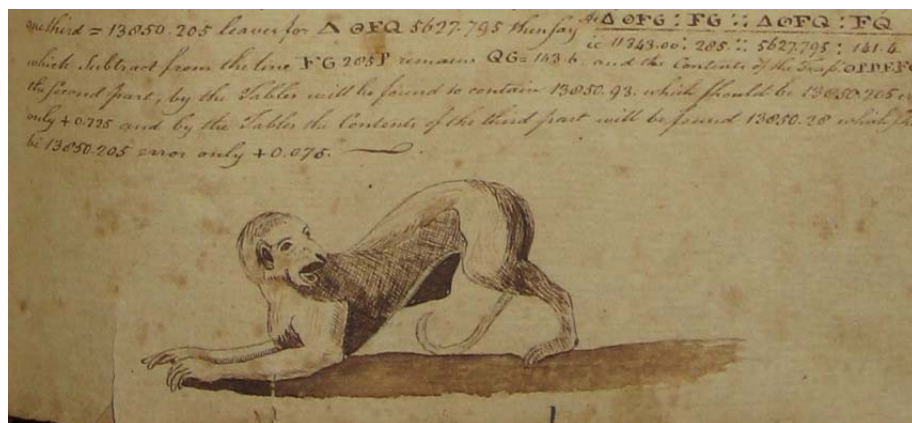 one third = 13850.205 leaves for Δ ΘFQ 5627.795 then say As Δ ΘFG : FG :: Δ ΘFQ : FQ
ie 11343.00 : 285 :: 5627.795 : 141.4
which Subtract from the line FG 285 remains QG = 143.6 and the Contents of the Trap.
the second part, by the Tables will be found to contain 13850.93. which should be 13850.205
only + 0.725 and by the Tables the Contents of the third part will be found 13850.28 which
be 13850.205 error only + 0.075.